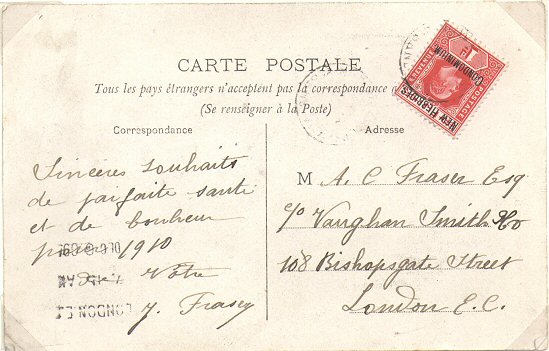 CARTE POSTALE
Tous les pays étrangers n'acceptent pas la correspondance
(Se renseigner à la Poste)
Correspondance
Sincères souhaits
de parfaite santé
et de bonheur
pour 1910
Votre
J. Frasey
LONDON E.C.
Adresse
M A. C Fraser Esq
c/o Vaughan Smith & Co
108 Bishopsgate Street
London E.C.
NEW HEBRIDES
CONDOMINIUM
POSTAGE
& REVENUE
1